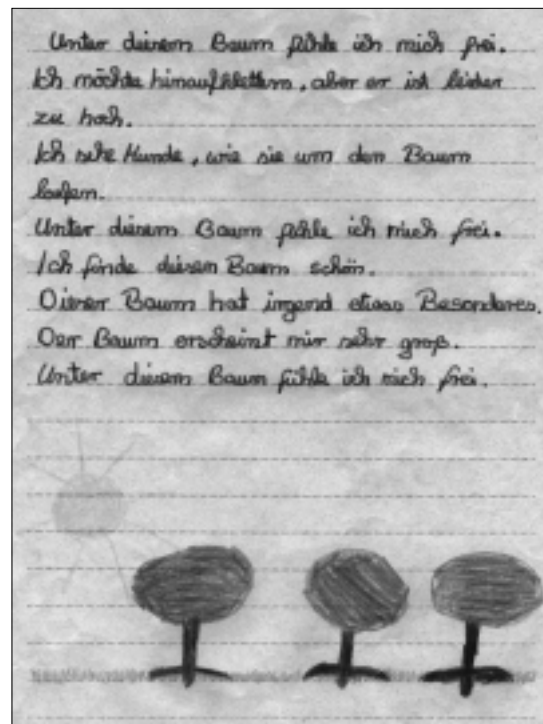 Unter diesem Baum fühle ich mich frei.
Ich möchte hinaufklettern, aber er ist leider
zu hoch.
Ich sehe Hunde, wie sie um den Baum
laufen.
Unter diesem Baum fühle ich mich frei.
Ich finde diesen Baum schön.
Dieser Baum hat irgend etwas Besonderes.
Der Baum erscheint mir sehr groß.
Unter diesem Baum fühle ich mich frei.